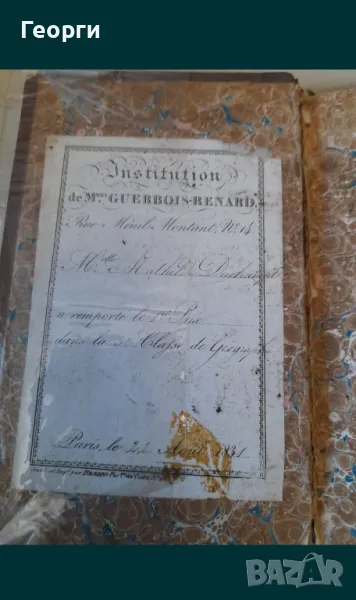 Георги
Institution
de Mme GUERBOIS-RENARD,
Rue Ménil-Montant, No. 14
Mlle Mathilde
a remporté le 1er Prix
dans la 2e Classe de Géographie
Paris, le 22 Août 1831.
BAZAR